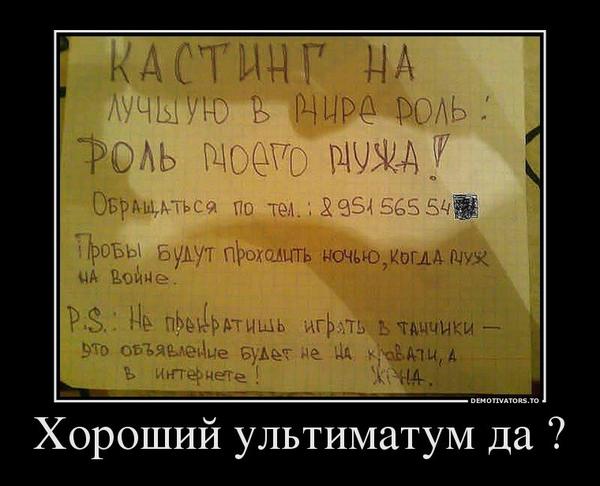 КАСТИНГ НА
ЛУЧШУЮ В МИРЕ РОЛЬ:
РОЛЬ МОЕГО МУЖА!
ОБРАЩАТЬСЯ ПО ТЕЛ.: 8 951 565 54
ПРОБЫ БУДУТ ПРОХОДИТЬ НОЧЬЮ, КОГДА МУЖ
НА ВОЙНЕ.
P.S.: НЕ ПРЕКРАТИШЬ ИГРАТЬ В ТАНЧИКИ —
ЭТО ОБЪЯВЛЕНИЕ БУДЕТ НЕ НА КРОВАТИ, А
В ИНТЕРНЕТЕ! ЖЕНА.
DEMOTIVATORS.TO
Хороший ультиматум да ?